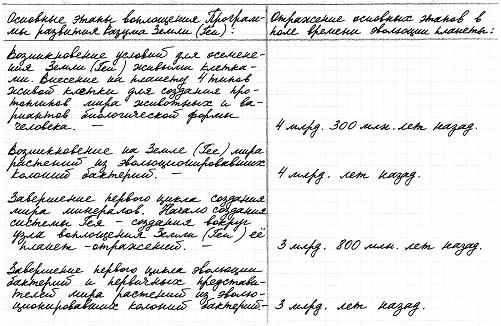 Основные этапы воплощения Програм-
мы развития Разума Земли (Геи):
Отражение основных этапов в
поле времени эволюции планеты:
Возникновение условий для осемене-
ния Земли (Геи) живыми клетка-
ми. Внесение на планету 4 типов
живой клетки для создания про-
тотипов мира животных и ва-
риантов биологической формы
человека. —
4 млрд. 300 млн. лет назад.
Возникновение на Земле (Гее) мира
растений из эволюционировавших
колоний бактерий. —
4 млрд. лет назад.
Завершение первого цикла создания
мира минералов. Начало создания
системы Гея – создания вокруг
узла воплощения Земли (Геи) её
планет-отражений. —
3 млрд. 800 млн. лет назад.
Завершение первого цикла эволюции
бактерий и первичных представи-
телей мира растений из эволю-
ционировавших колоний бактерий–
3 млрд. лет назад.